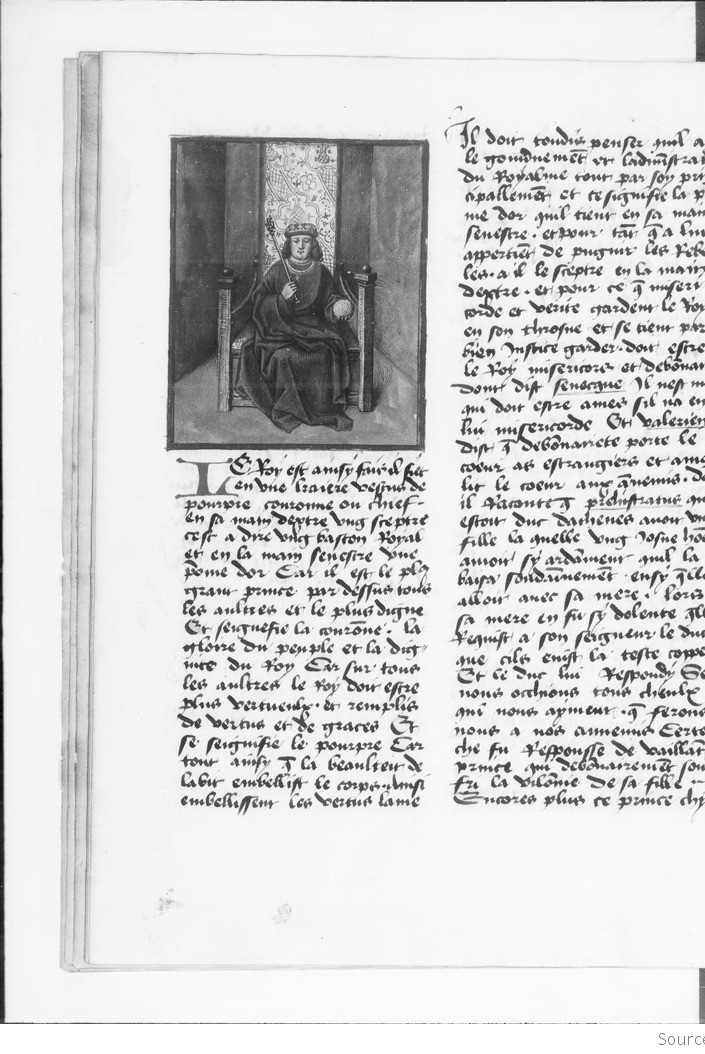 LE Roy est ainsy fait il siet
en vne kaiere vestus de
pourpre couronne ou chief.
en sa main dextre vng sceptre
cest a dire vng baston Royal
et en la main senestre vne
pome dor Car il est le plꝯ
grant prince par dessus tous
les aultres et le plus digne
Et seignefie la courōne. la
gloire du peuple et la dig-
nite du Roy Car sur tous
les aultres le Roy doit estre
plus vertueulx. et remplis
de vertus et de graces Et
se seignifie le pourpre Car
tout ainsy q̄ la beaulteit de
labit embellist le corps. Ainsi
embellissent les vertus lame
Il doit toudis penser quil a
le gouu̾nemēt et
du Royalme tout par soy pri
cipallemēt et ce signifie la p
me dor quil tient en sa main
senestre. et pour tāt q̄ a lui
appertiēt de pugnir les Rebe
les. a il le sceptre en la main
dextre. et pour ce q̄ miseri
corde et verite gardent le Roy
en son throsne et se tient par
bien Justice garder. doit estre
le Roy misericors et debōnai
dont dist senecque Il nest n
qui doit estre ames sil na en
lui misericorde Et valerien
dist q̄ debōnairete porte le
coeur as estrangiers et amo
lit le coeur aux q̄nemis. De
il Racōnte q̄ qui
estoit duc dathenes auoit vn
fille la quelle vng Josne hōe
amoit sy ardāment quil la
baisa soudainnement. ensy q̄lle
alloit auec sa mere. lors
sa mere en fu sy dolente q̄lle
Requist a son seigneur le duc
que cils euist la teste coppe
Et le duc lui Respondy Se
nous occhions tous cheulx
qui nous ayment. q̄ ferons
nous a nos annemis Certe
che fu Respousse de vaillāt
prince qui debōnairemēt sou
fri la vilōnie de sa fille
Encores plus ce prince chy
Source